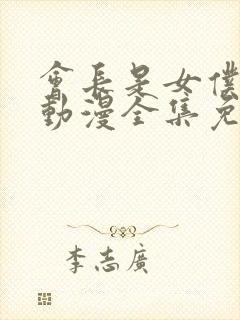 會長是女僕
動漫全集免
李志廣